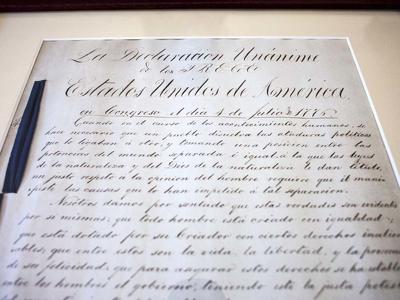 La Declaracion Unánime
de los TRECE
Estados Unidos de América,
en Congreso el dia 4 de julio de 1776.
Cuando en el curso de los acontecimientos humanos, se
hace necesario que un pueblo disuelva las ataduras políticas
que lo ligaban á otro, y tomando una posición entre las
potencias del mundo separada é igual, á la que las leyes
de la naturaleza y del Dios de la naturaleza le dan título,
un justo respeto á la opinion del hombre requiere que él mani
fieste las causas que lo han impelido á tal separacion.
Nosotros damos por sentado que estas verdades son evidentes
por si mismas; que todo hombre está creado con igualdad;
que está dotado por su Creador con ciertos derechos inalien
ables, que entre estos son la vida, la libertad, y la
de su felicidad, que para asegurar estos derechos se ha estable
entre los hombres el gobierno, teniendo este la justa